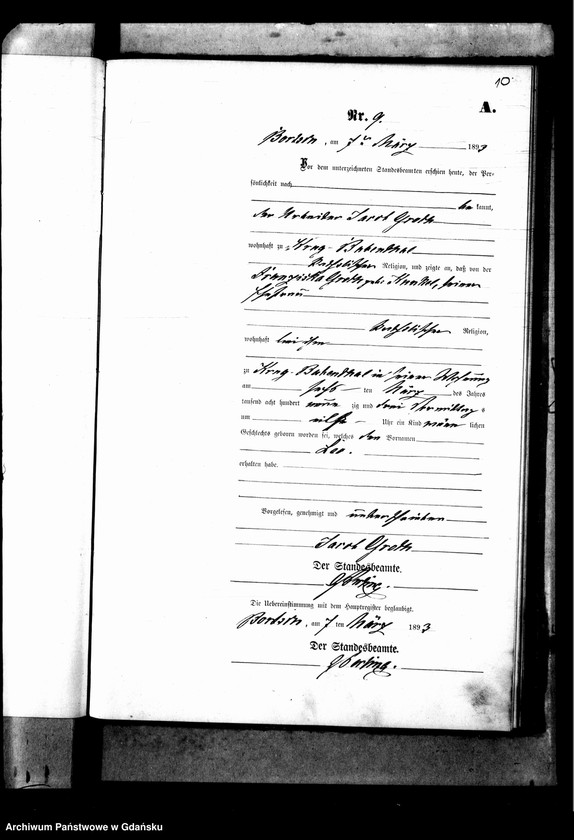 10
A.
Nr. 9.
am 7ten März 1893
Vor dem unterzeichneten Standesbeamten erschien heute, der Per-
sönlichkeit nach
be kannt,
der Arbeiter Jacob Groth
wohnhaft zu Krug-Babenthal
katholischer Religion, und zeigte an, daß von der
Franziska Groth geb. Kunkel, seiner
Ehefrau
katholischer Religion,
wohnhaft bei ihm
zu Krug-Babenthal in seiner Wohnung
am sechs ten März des Jahres
tausend acht hundert neun zig und drei Vormittag s
um eilf Uhr ein Kind männ lichen
Geschlechts geboren worden sei, welches den Vornamen
Leo.
erhalten habe.
Vorgelesen, genehmigt und unterschrieben
Jacob Groth
Der Standesbeamte.
Die Uebereinstimmung mit dem Hauptregister beglaubigt.
am 7 ten März 1893
Der Standesbeamte.
Archiwum Państwowe w Gdańsku